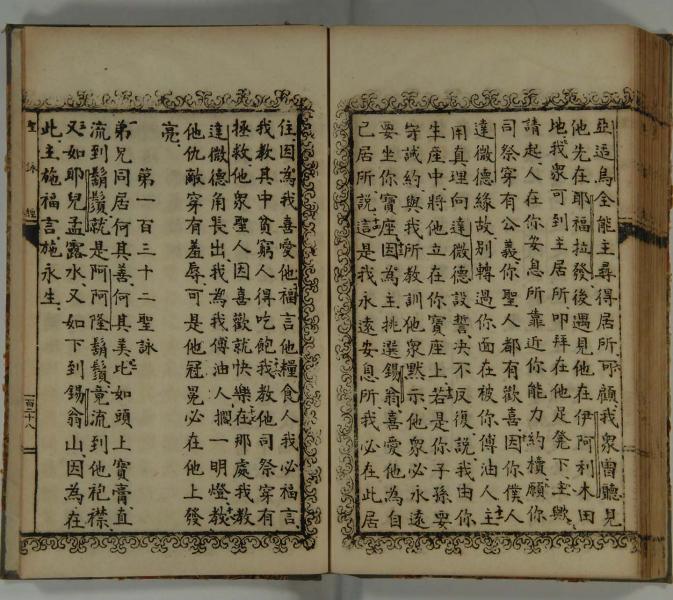 亞迨烏全能主尋得居所可顧我衆曾聽見
他先在耶福拉發後遇見他在伊阿利木田
地我衆可到主居所叩拜在他足凳下主興
請起入在你安息所靠近你能力約櫝願你
司祭穿有公義你聖人都有歡喜因你僕人
達微德緣故別轉過你面在被你傅油人主
用真理向達微德設誓決不反復說我由你
生產中將他立在你寶座上若是你子孫要
守誡約與我所教訓他衆黙示他衆必永遠
要坐你寶座因為主挑選錫翁喜愛他為自
己居所說這是我永遠安息所我必在此居
住因為我喜愛他福言他糧食人我必福言
我教其中貧窮人得吃飽我教他司祭穿有
拯救他衆聖人因喜歡就快樂在那處我教
達微德角長出我為我傅油人擱一明燈教
他仇敵穿有羞辱可是他冠冕必在他上發
亮
第一百三十二聖詠
弟兄同居何其善何其美比如頭上寶膏直
流到鬍鬚就是阿阿隆鬍鬚竟流到他袍襟
又如耶兒孟露水又如下到錫翁山因為在
此主施福言施永生
聖詠經